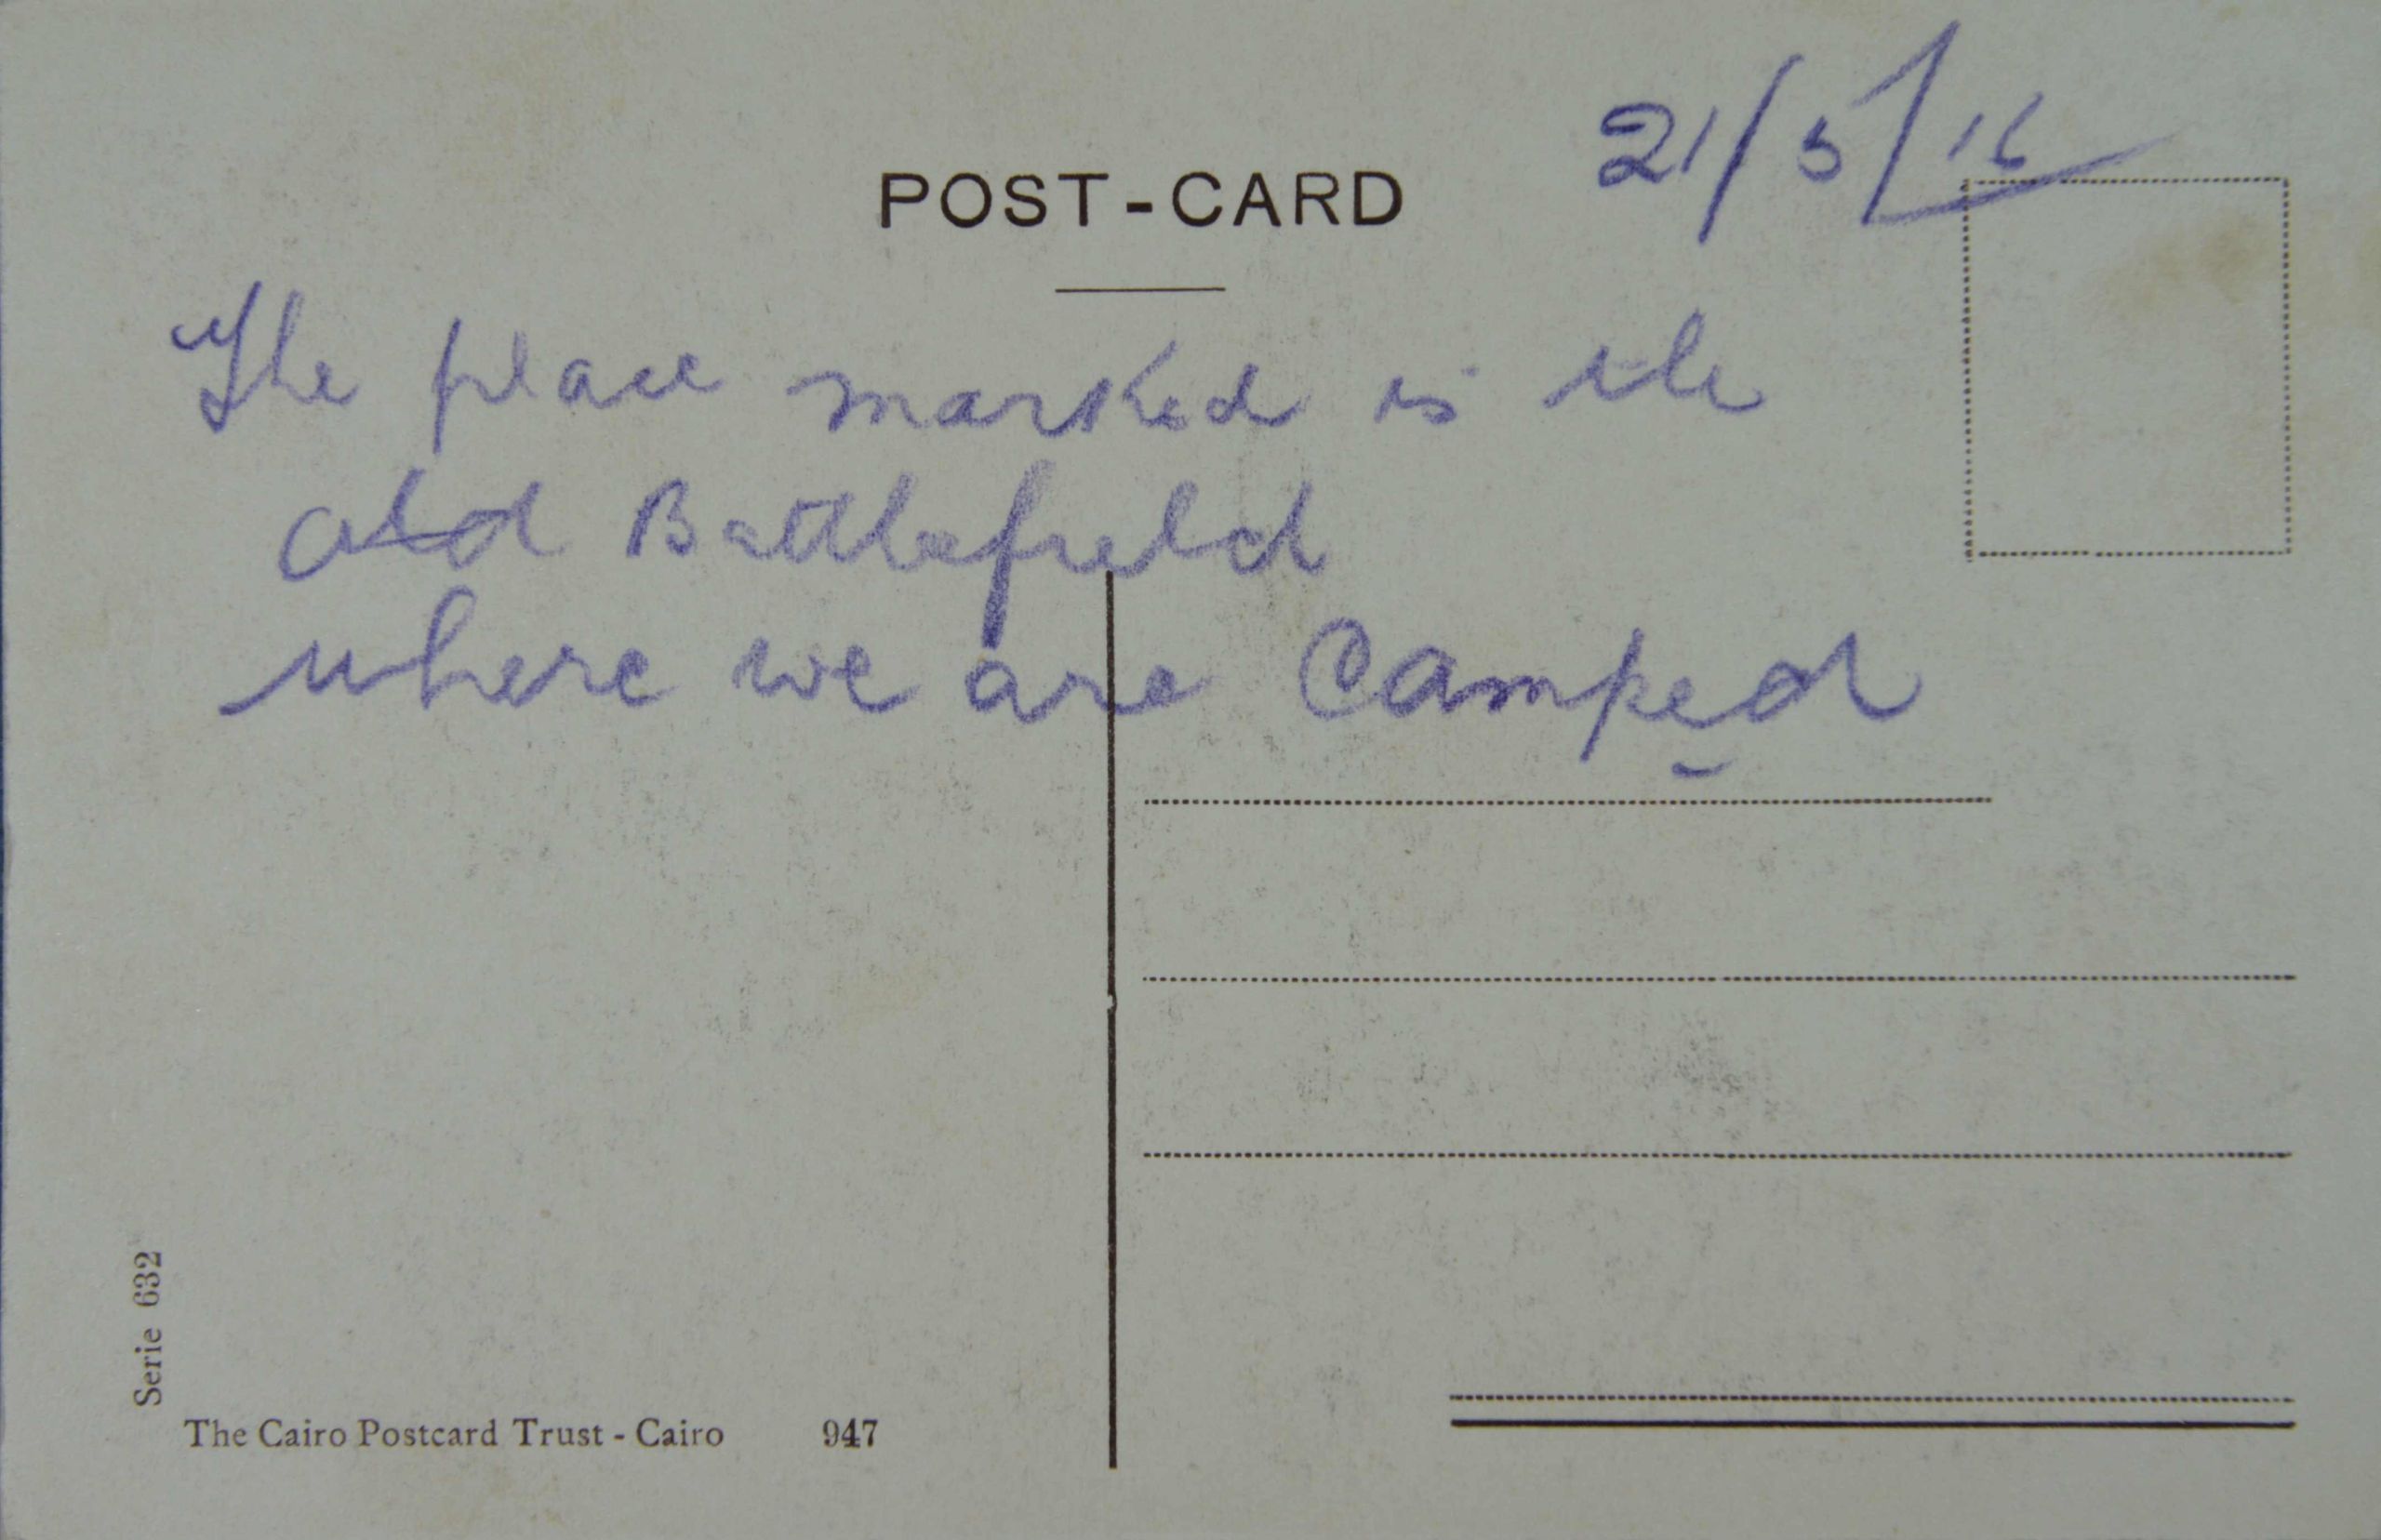 21/5/16
POST-CARD
The place marked is the
old Battlefield
where we are Camped
Serie 632
The Cairo Postcard Trust - Cairo 947